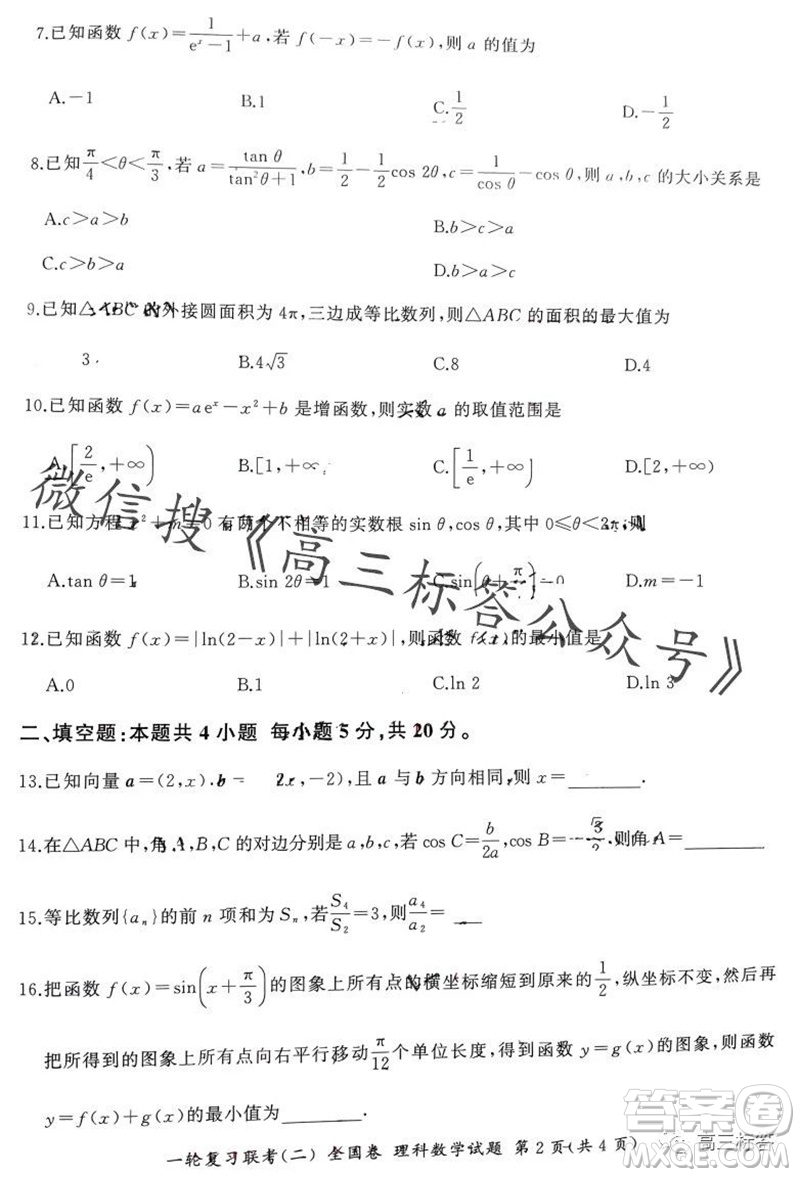 7.已知函数 f(x)=1/(eˣ-1)+a,若 f(-x)=-f(x),则 a 的值为
A.-1 B.1 C.1/2 D.-1/2
8.已知π/4<θ<π/3,若 a=tan θ/(tan²θ+1),b=1/2-1/2cos 2θ,c=1/cos θ-cos θ,则 a,b,c 的大小关系是
A.c>a>b B.b>c>a
C.c>b>a D.b>a>c
9.已知△ABC 的外接圆面积为 4π,三边成等比数列,则△ABC 的面积的最大值为
3 B.4√3 C.8 D.4
10.已知函数 f(x)=aeˣ-x²+b 是增函数,则实数 a 的取值范围是
A.[2/e,+∞) B.[1,+∞) C.[1/e,+∞) D.[2,+∞)
11.已知方程 ²+m=0 有两个不相等的实数根 sin θ,cos θ,其中 0≤θ<2π,则
A.tan θ=1 B.sin 2θ=1 C.sin(θ+π/)=0 D.m=-1
12.已知函数 f(x)=|ln(2-x)|+|ln(2+x)|,则函数 f(x)的最小值是
A.0 B.1 C.ln 2 D.ln 3
二、填空题:本题共 4 小题 每小题 5 分,共 20 分。
13.已知向量 a=(2,x).b= 2x,-2),且 a 与 b 方向相同,则 x=______.
14.在△ABC 中,角 A,B,C 的对边分别是 a,b,c,若 cos C=b/2a,cos B=-√3/2,则角 A=______
15.等比数列{aₙ}的前 n 项和为 Sₙ,若S₄/S₂=3,则a₄/a₂=__
16.把函数 f(x)=sin(x+π/3)的图象上所有点的横坐标缩短到原来的1/2,纵坐标不变,然后再
把所得到的图象上所有点向右平行移动π/12个单位长度,得到函数 y=g(x)的图象,则函数
y=f(x)+g(x)的最小值为______.
一轮复习联考(二) 全国卷 理科数学试题 第 2 页(共 4 页)
微信搜《高三标答公众号》
答案圈
高三标答